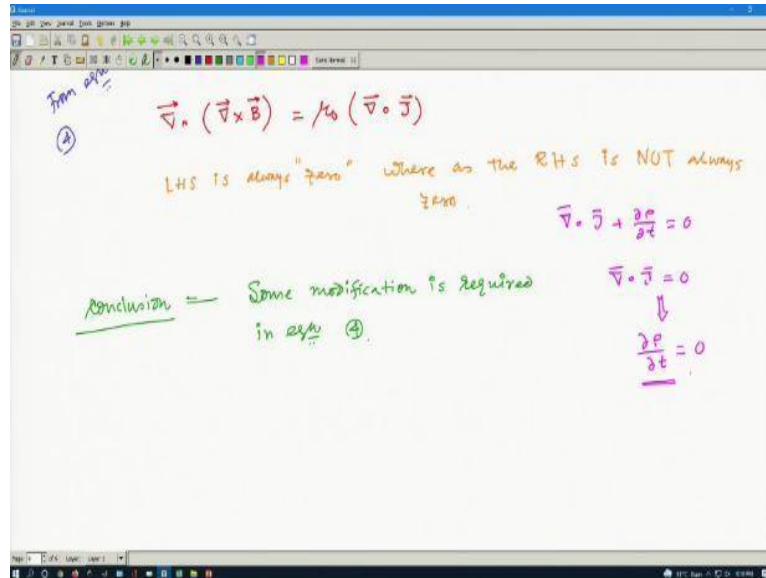 From eqn
④
∇⃗ • (∇⃗ × B⃗) = μ₀ (∇⃗ • J⃗)
LHS is always "zero" where as the RHS is NOT always
zero.
∇̄ • J̄ + ∂ρ/∂t = 0
∇̄ • J̄ = 0
⇓
∂ρ/∂t = 0
Conclusion = Some modification is required
in eqn ④.